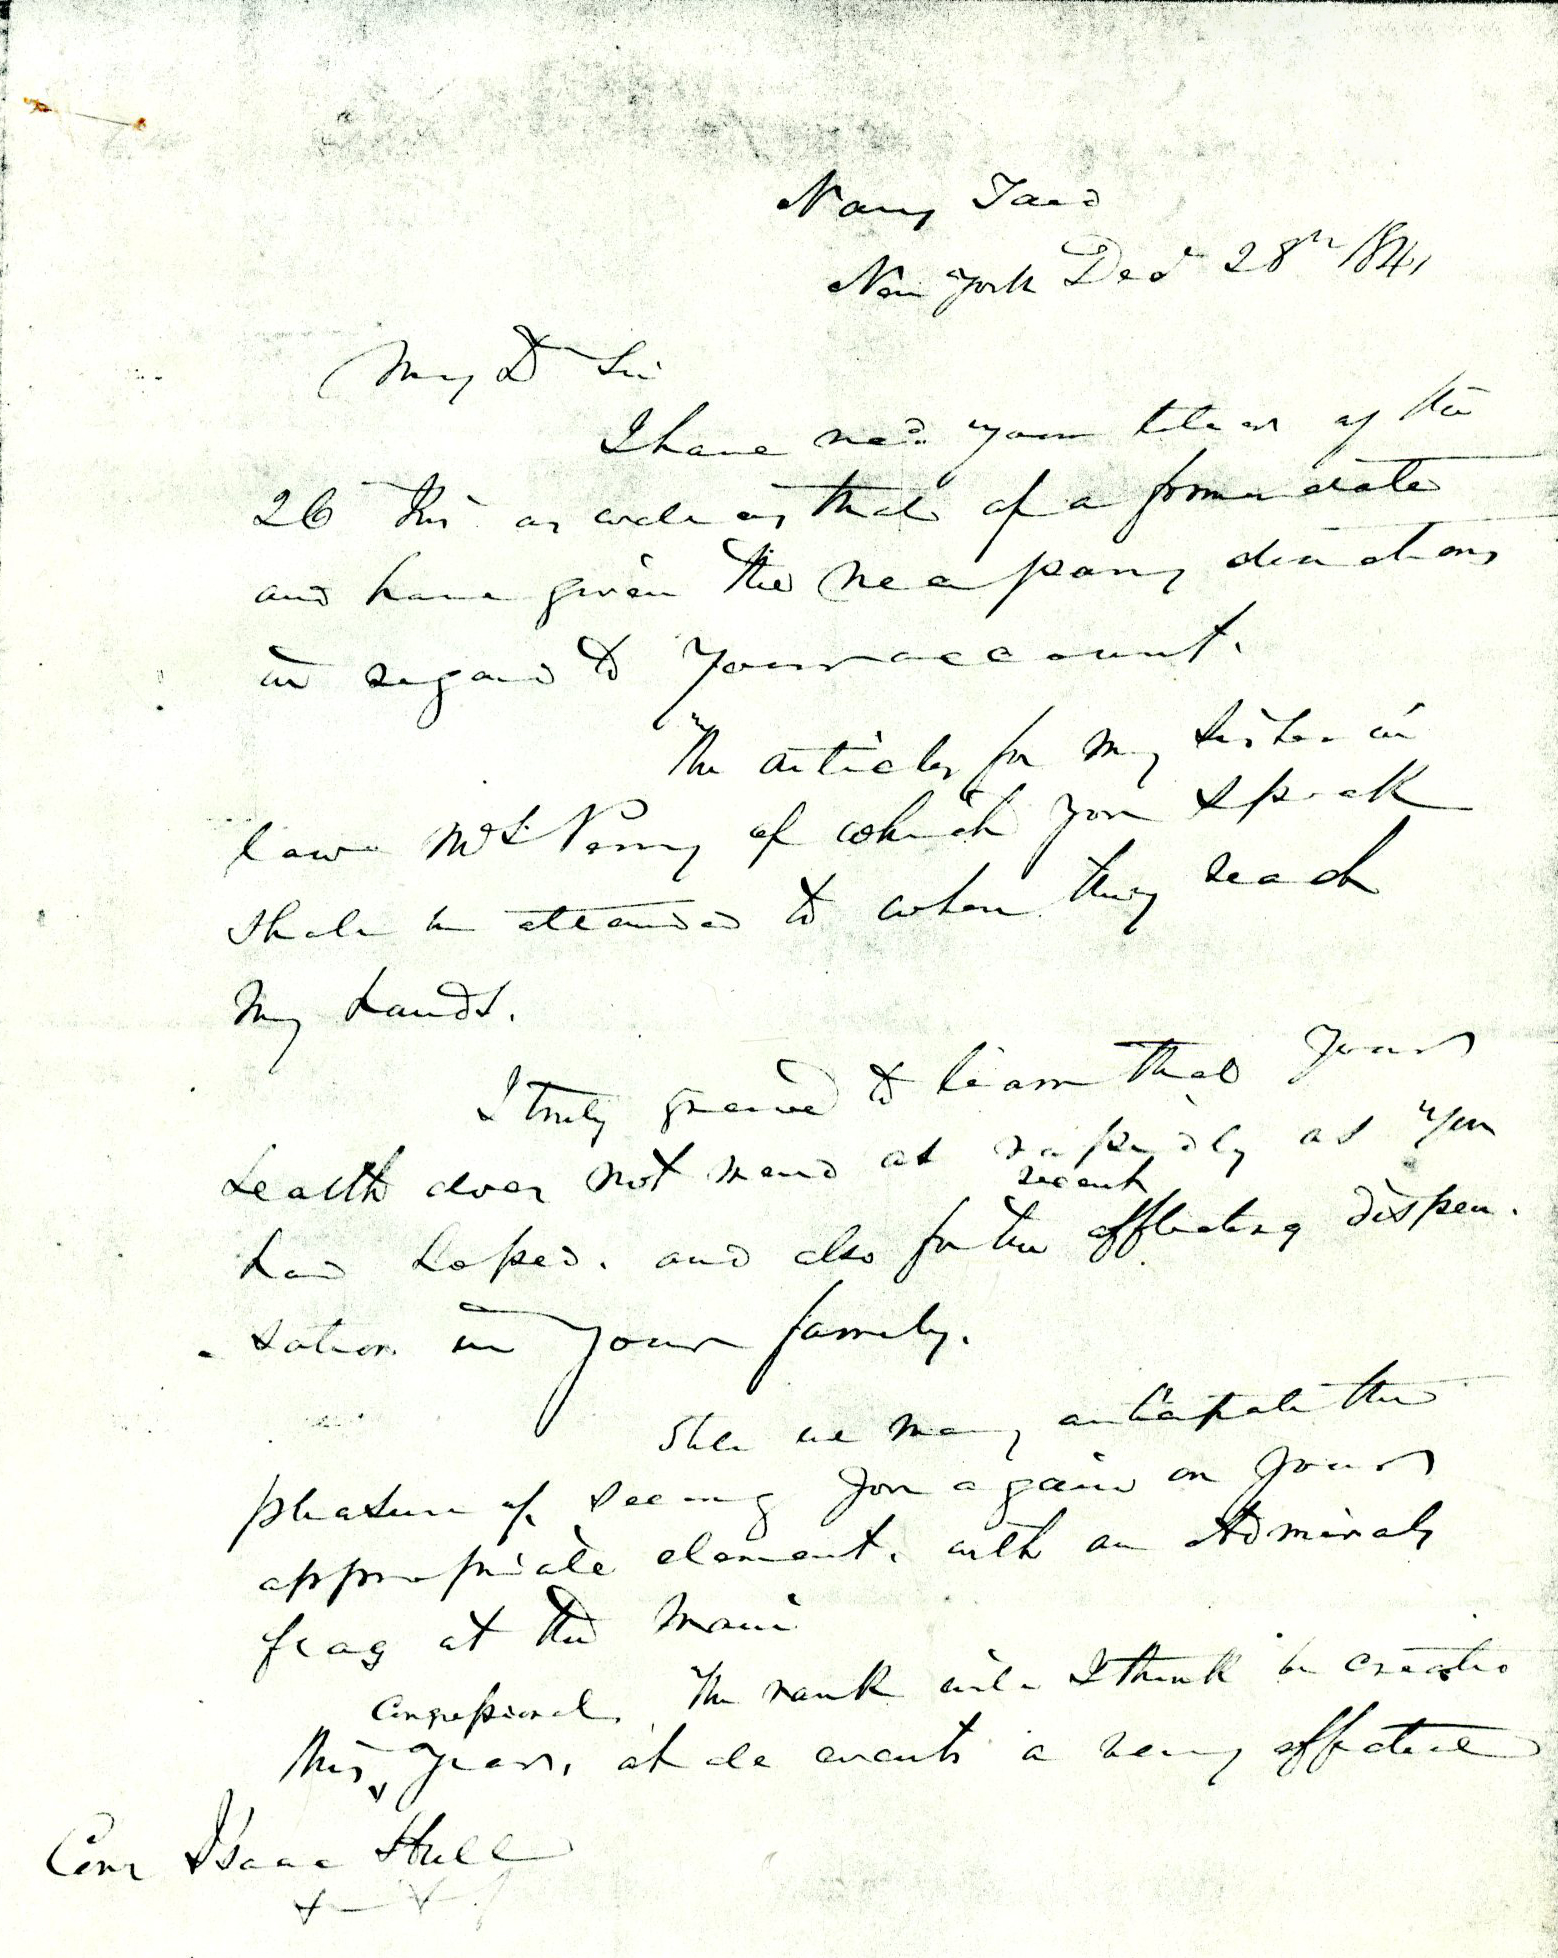 Navy Yard
New York Decr 28th 1841
My Dr Sir
I have recd. your letter of the
26th Ins as well as that of a former date
and have given the necessary directions
in regard to your account.
The articles for my sister in
law Mrs Perry of which you speak
shall be attended to when they reach
my hands.
I truly grieved to learn that your
health does not mend as rapidly as you
recent
had hoped. and also for the afflicting dispen-
-sation in your family.
Still we may anticipate the
pleasure of seeing you again on your
appropriate element. with an Admirals
flag at the Main
congressional The rank will I think be created
this year, at all events a very effective
Com Isaac Hull